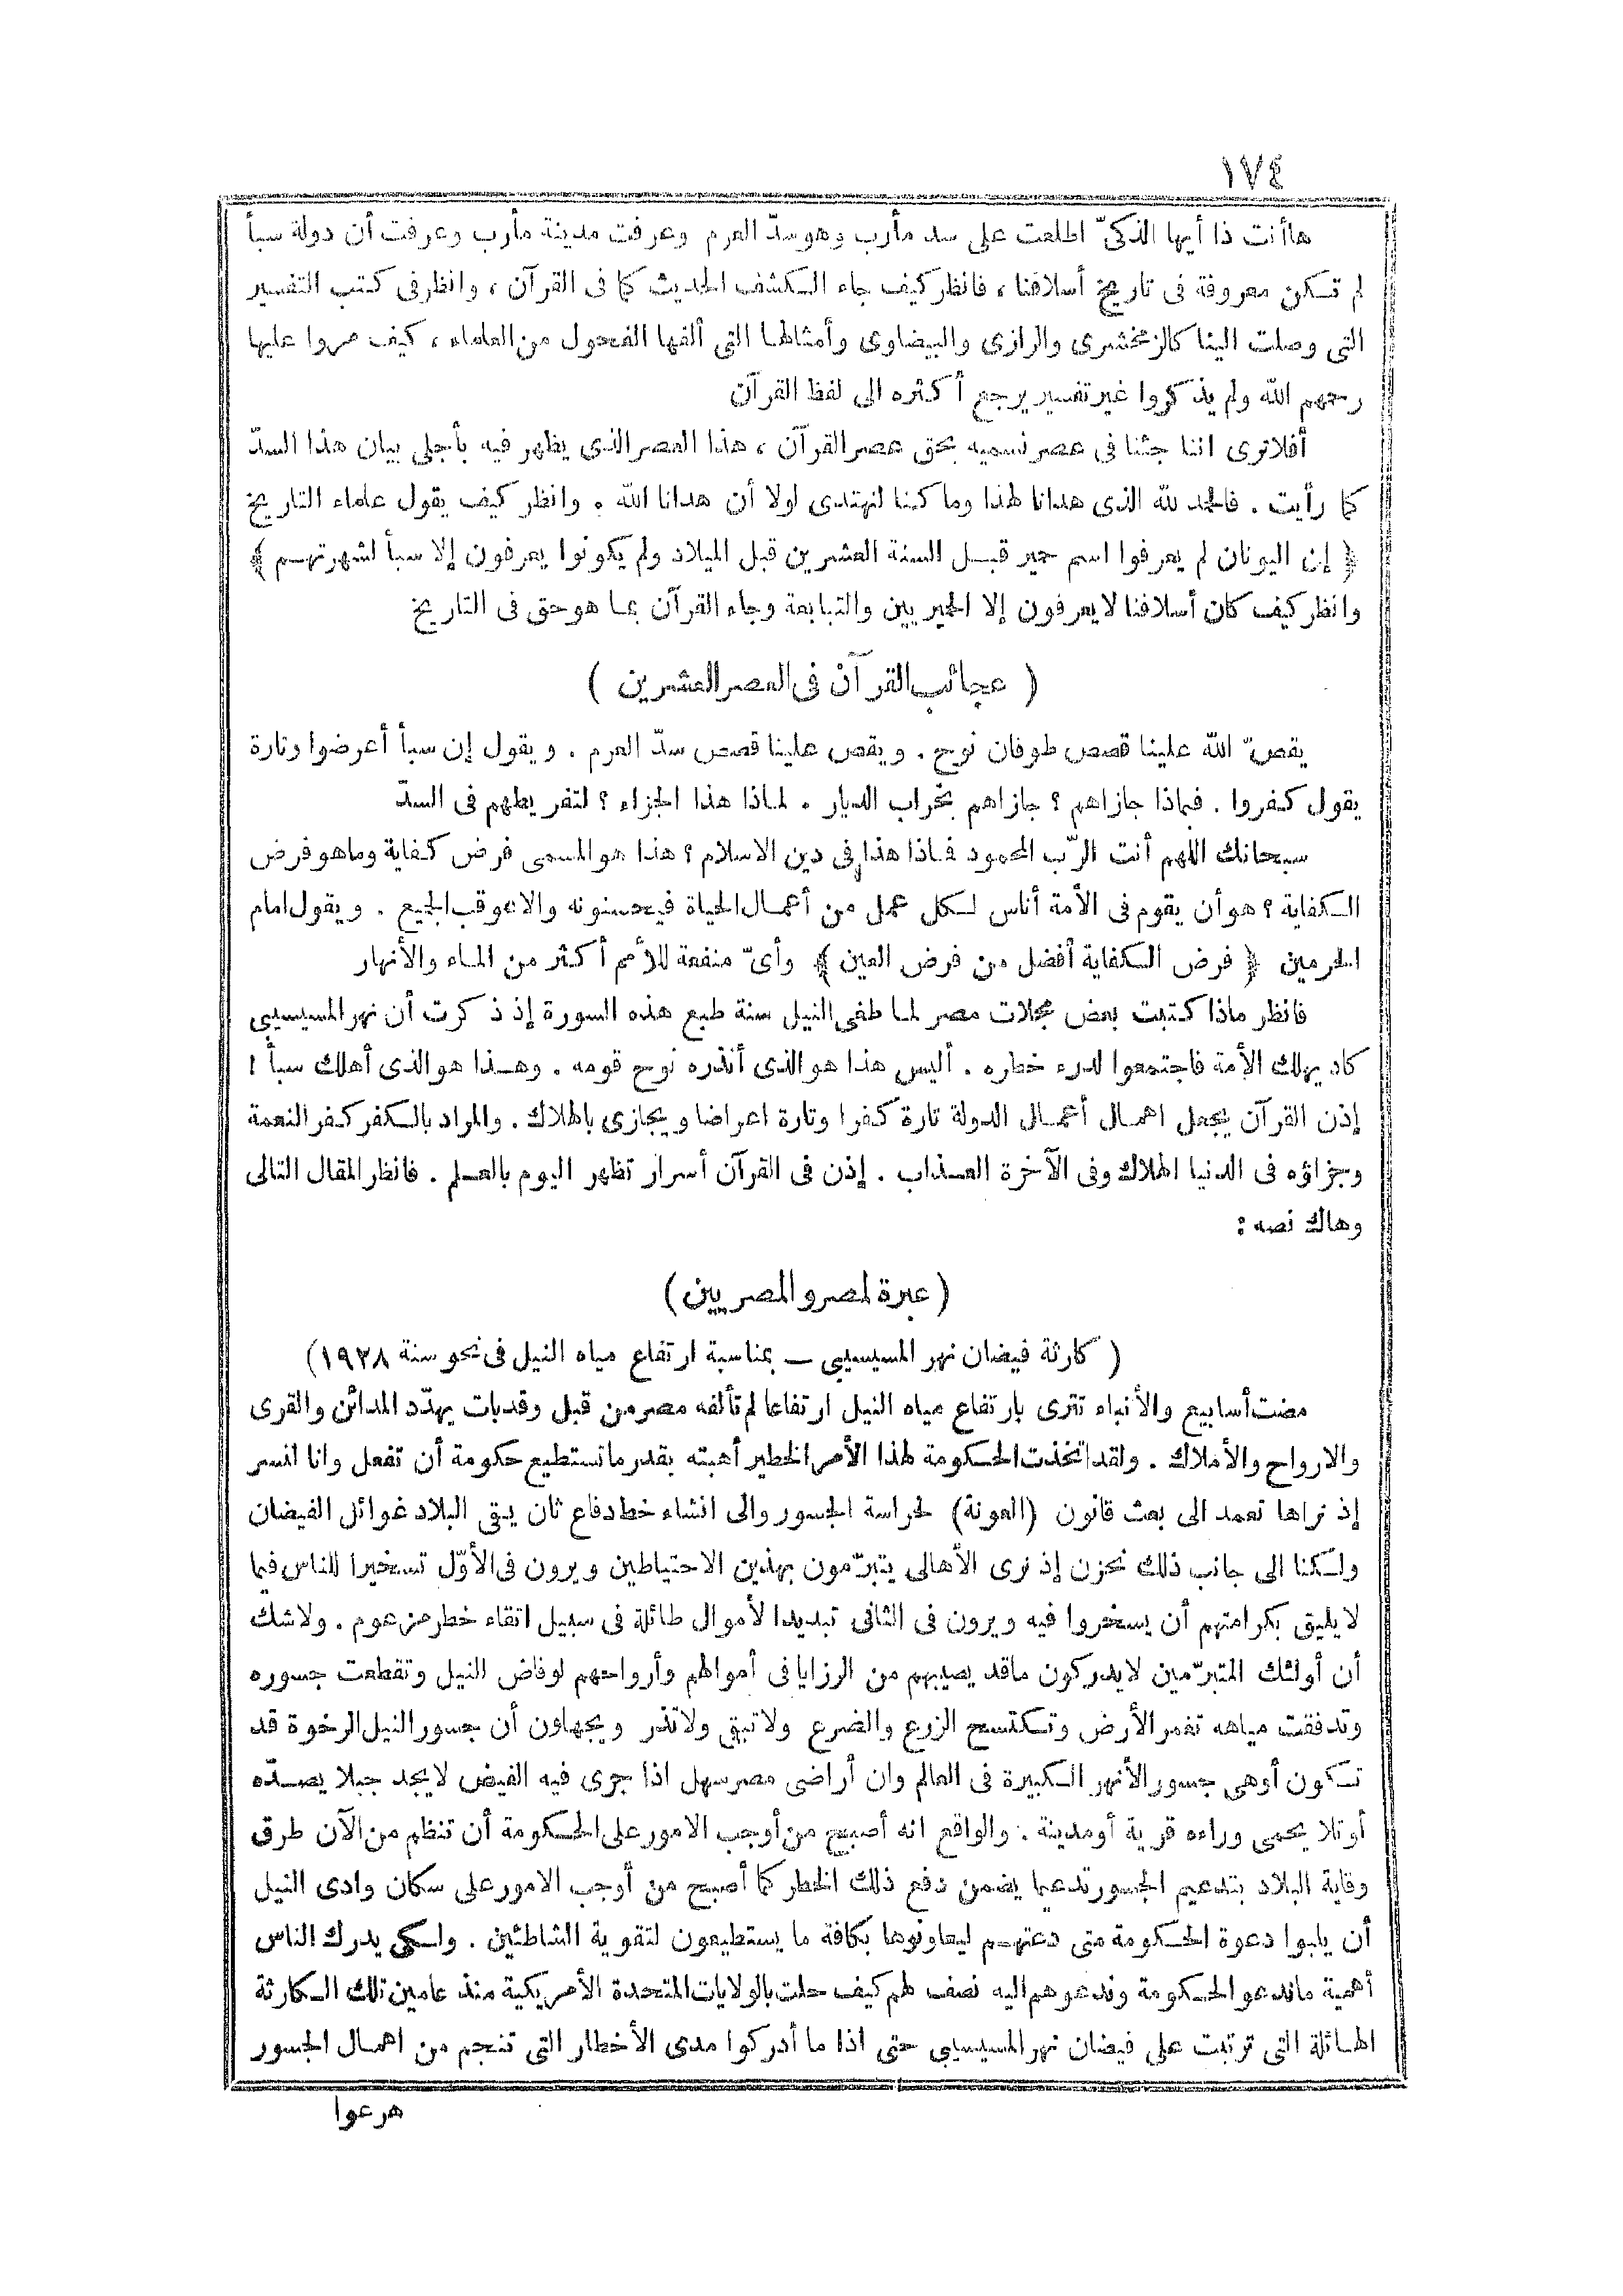 ١٧٤
هاأنت ذا أيها الذكىّ اطلعت على سد مأرب وهو سدّ العرم وعرفت مدينة مأرب وعرفت أن دولة سبأ
لم تكن معروفة فى تاريخ أسلافنا ، فانظر كيف جاء الكشف الحديث كما فى القرآن ، وانظر فى كتب التفسير
التى وصلت الينا كالزمخشرى والرازى والبيضاوى وأمثالها التى ألفها الفحول من العلماء ، كيف مروا عليها
رحمهم الله ولم يذكروا غير تفسير يرجع أكثره الى لفظ القرآن
أفلاترى اننا جئنا فى عصر نسميه بحق عصر القرآن ، هذا العصر الذى يظهر فيه بأجلى بيان هذا السدّ
كما رأيت . فالحمد لله الذى هدانا لهذا وما كنا لنهتدى لولا أن هدانا الله . وانظر كيف يقول علماء التاريخ
﴿ إن اليونان لم يعرفوا اسم حمير قبل السنة العشرين قبل الميلاد ولم يكونوا يعرفون إلا سبأ لشهرتهم ﴾
وانظر كيف كان أسلافنا لا يعرفون إلا الحميريين والتبابعة وجاء القرآن بما هو حق فى التاريخ
( عجائب القرآن فى العصر العشرين )
يقصّ الله علينا قصص طوفان نوح . ويقص علينا قصص سدّ العرم . ويقول إن سبأ أعرضوا وتارة
يقول كفروا . فبماذا جازاهم ؟ جازاهم بخراب الديار . لماذا هذا الجزاء ؟ لتفريطهم فى السدّ
سبحانك اللهم أنت الرّب المحمود فماذا هذا فى دين الاسلام ؟ هذا هو المسمى فرض كفاية وماهو فرض
الكفاية ؟ هو أن يقوم فى الأمة أناس لكل عمل من أعمال الحياة فيحسنونه والاعوقب الجميع . ويقول امام
الحرمين ﴿ فرض الكفاية أفضل من فرض العين ﴾ وأىّ منفعة للأمم أكثر من الماء والأنهار
فانظر ماذا كتبت بعض مجلات مصر لما طغى النيل سنة طبع هذه السورة إذ ذكرت أن نهر المسيسيبى
كاد يهلك الأمة فاجتمعوا لدرء خطره . أليس هذا هو الذى أنذره نوح قومه . وهذا هو الذى أهلك سبأ !
إذن القرآن يجعل اهمال أعمال الدولة تارة كفرا وتارة اعراضا ويجازى بالهلاك . والمراد بالكفر كفر النعمة
وجزاؤه فى الدنيا الهلاك وفى الآخرة العذاب . إذن فى القرآن أسرار تظهر اليوم بالعلم . فانظر المقال التالى
وهاك نصه :
( عبرة لمصر والمصريين )
( كارثة فيضان نهر المسيسيبى — بمناسبة ارتفاع مياه النيل فى نحو سنة ١٩٢٨ )
مضت أسابيع والأنباء تترى بارتفاع مياه النيل ارتفاعا لم تألفه مصر من قبل وقد بات يهدّد المدائن والقرى
والارواح والأملاك . ولقد اتخذت الحكومة لهذا الأمر الخطير أهبته بقدر ما تستطيع حكومة أن تفعل وانا لنسر
إذ نراها تعمد الى بعث قانون (العونة) لحراسة الجسور والى انشاء خط دفاع ثان يقى البلاد غوائل الفيضان
ولكنا الى جانب ذلك نحزن إذ نرى الأهالى يتبرّمون بهذين الاحتياطين ويرون فى الأوّل تسخيرا للناس فيما
لا يليق بكرامتهم أن يسخروا فيه ويرون فى الثانى تبديدا لأموال طائلة فى سبيل اتقاء خطر مزعوم . ولاشك
أن أولئك المتبرّمين لا يدركون ماقد يصيبهم من الرزايا فى أموالهم وأرواحهم لوفاض النيل وتقطعت جسوره
وتدفقت مياهه تغمر الأرض وتكتسح الزرع والضرع ولاتبقى ولاتذر ويجهلون أن جسور النيل الرخوة قد
تكون أوهى جسور الأنهر الكبيرة فى العالم وان أراضى مصر سهل اذا جرى فيه الفيض لا يجد جبلا يصدّه
أوتلا يحمى وراءه قرية أومدينة . والواقع انه أصبح من أوجب الامور على الحكومة أن تنظم من الآن طرق
وقاية البلاد بتدعيم الجسور تدعيما يضمن دفع ذلك الخطر كما أصبح من أوجب الامور على سكان وادى النيل
أن يلبوا دعوة الحكومة متى دعتهم ليعاونوها بكافة ما يستطيعون لتقوية الشاطئين . ولكى يدرك الناس
أهمية ماندعو الحكومة وندعوهم اليه نصف لهم كيف حلت بالولايات المتحدة الأمريكية منذ عامين تلك الكارثة
الهائلة التى ترتبت على فيضان نهر المسيسيبى حتى اذا ما أدركوا مدى الأخطار التى تنجم من اهمال الجسور
هرعوا